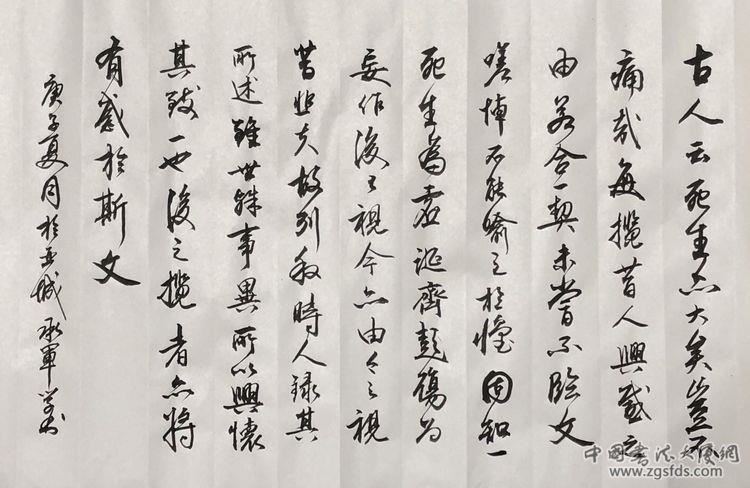 古人云死生亦大矣豈不
痛哉每攬昔人興感之
由若合一契未嘗不臨文
嗟悼不能喻之於懷固知一
死生為虛誕齊彭殤為
妄作後之視今亦由今之視
昔悲夫故列叙時人錄其
所述雖世殊事異所以興懷
其致一也後之攬者亦將
有感於斯文
庚子夏月於城軍
中國書法大厦網
www.zgsfds.com